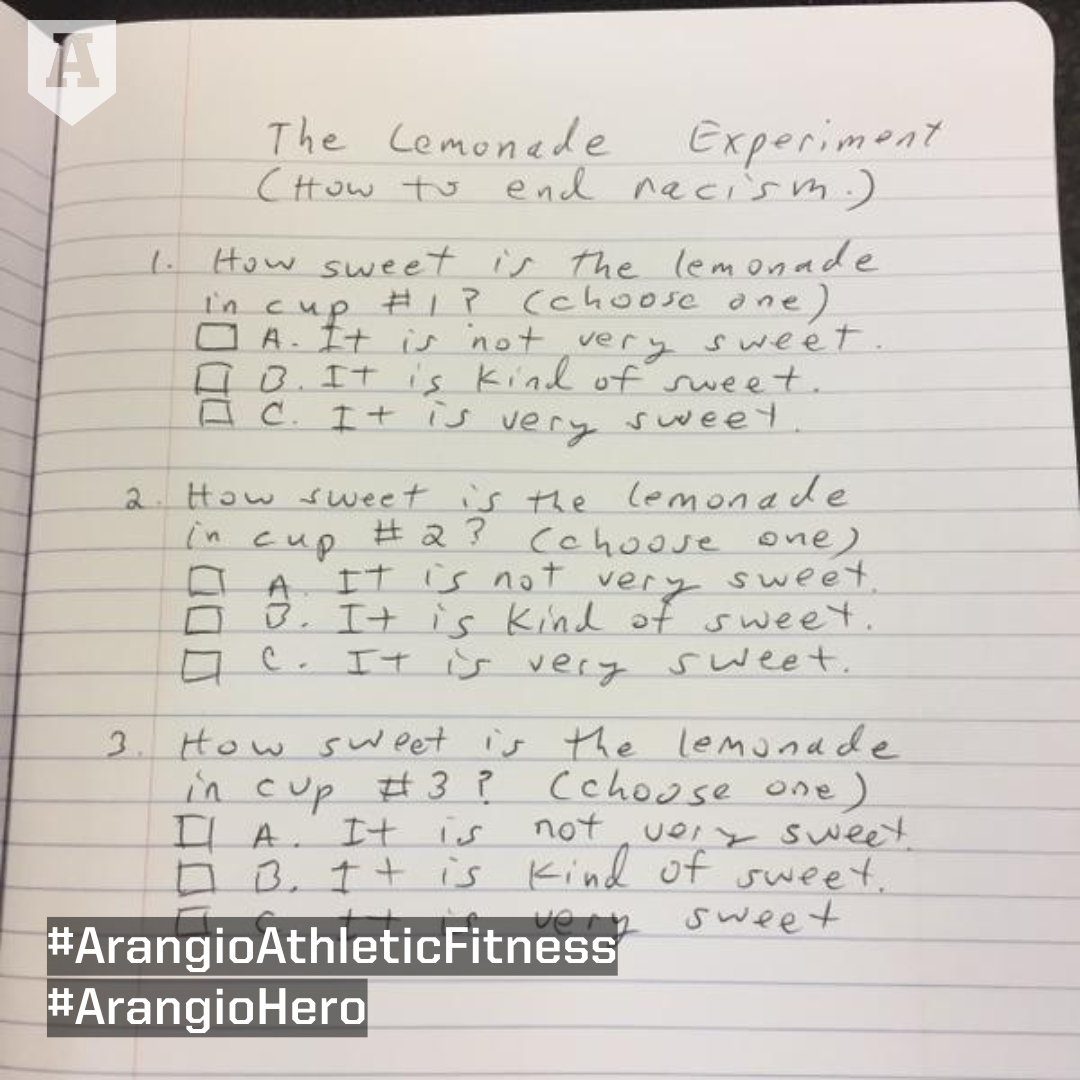 A
The Lemonade Experiment
(How to end racism.)
1. How sweet is the lemonade
in cup #1? (choose one)
A. It is not very sweet.
B. It is kind of sweet.
C. It is very sweet.
2. How sweet is the lemonade
in cup #2? (choose one)
A. It is not very sweet.
B. It is kind of sweet.
C. It is very sweet.
3. How sweet is the lemonade
in cup #3? (choose one)
A. It is not very sweet.
B. It is kind of sweet.
C. It is very sweet
#ArangioAthleticFitness
#ArangioHero